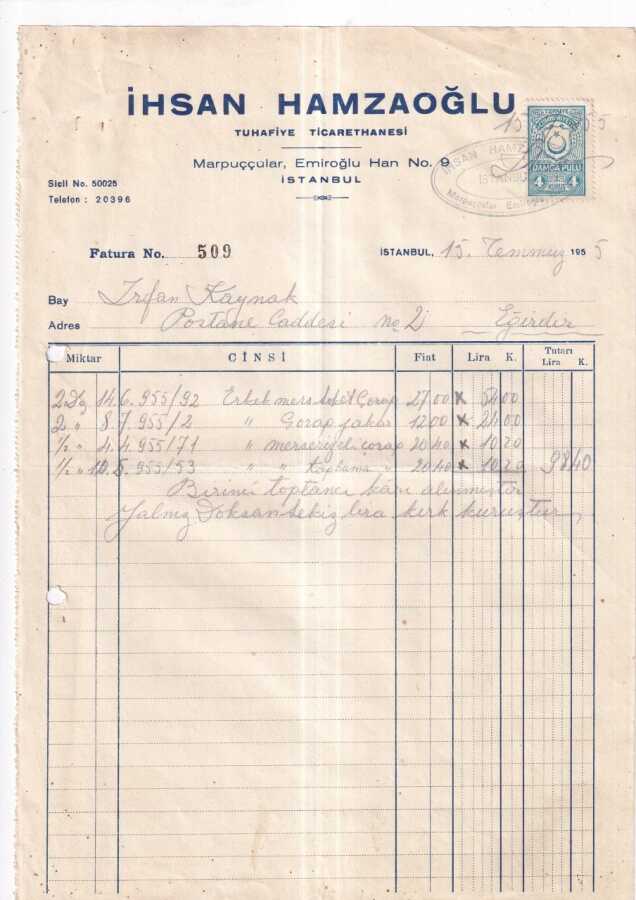 İHSAN HAMZAOĞLU
TUHAFİYE TİCARETHANESİ
Marpuççular, Emiroğlu Han No. 9
İSTANBUL
Sicil No. 50025
Telefon : 20396
15
5
İHSAN HAMZA
İSTANBUL
Marpuçcular Emiroğlu
DAMGA PULU
4 4
Fatura No. 509
İSTANBUL, 15. Temmuz 1955
Bay İrfan Kaynak
Adres Postane Caddesi No 2 Eğirdir
Miktar CİNSİ Fiat Lira K. Tutarı Lira K.
2 Dz 14.6.955/92 Erkek mers Çorap 27 00 x 54 00
2 " 8.7.955/2 " Çorap jakar 12 00 x 24 00
1/2 " 4.4.955/71 " merserizeli çorap 20 40 x 10 20
1/2 " 10.5.955/53 " " Kaplama " 20 40 x 10 20 98 40
Birinci toptancı karı alınmıştır
Yalnız Doksansekiz lira kırk kuruştur